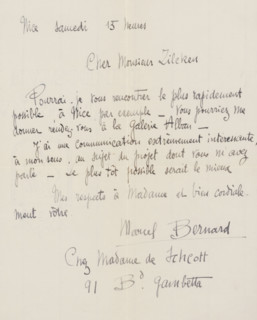 Nice samedi 15 heures
Cher Monsieur Zilcken
Pourrai-je vous rencontrer le plus rapidement
possible, à Nice par exemple — Vous pourriez me
donner rendez vous à la galerie Alban —
J'ai une communication extrêmement intéressante,
à mon sens, au sujet du projet dont vous m'avez
parlé — Le plus tôt possible serait le mieux
Mes respects à Madame et bien cordiale-
ment vôtre
Marcel Bernard
Chez Madame de
91 Bd. Gambetta